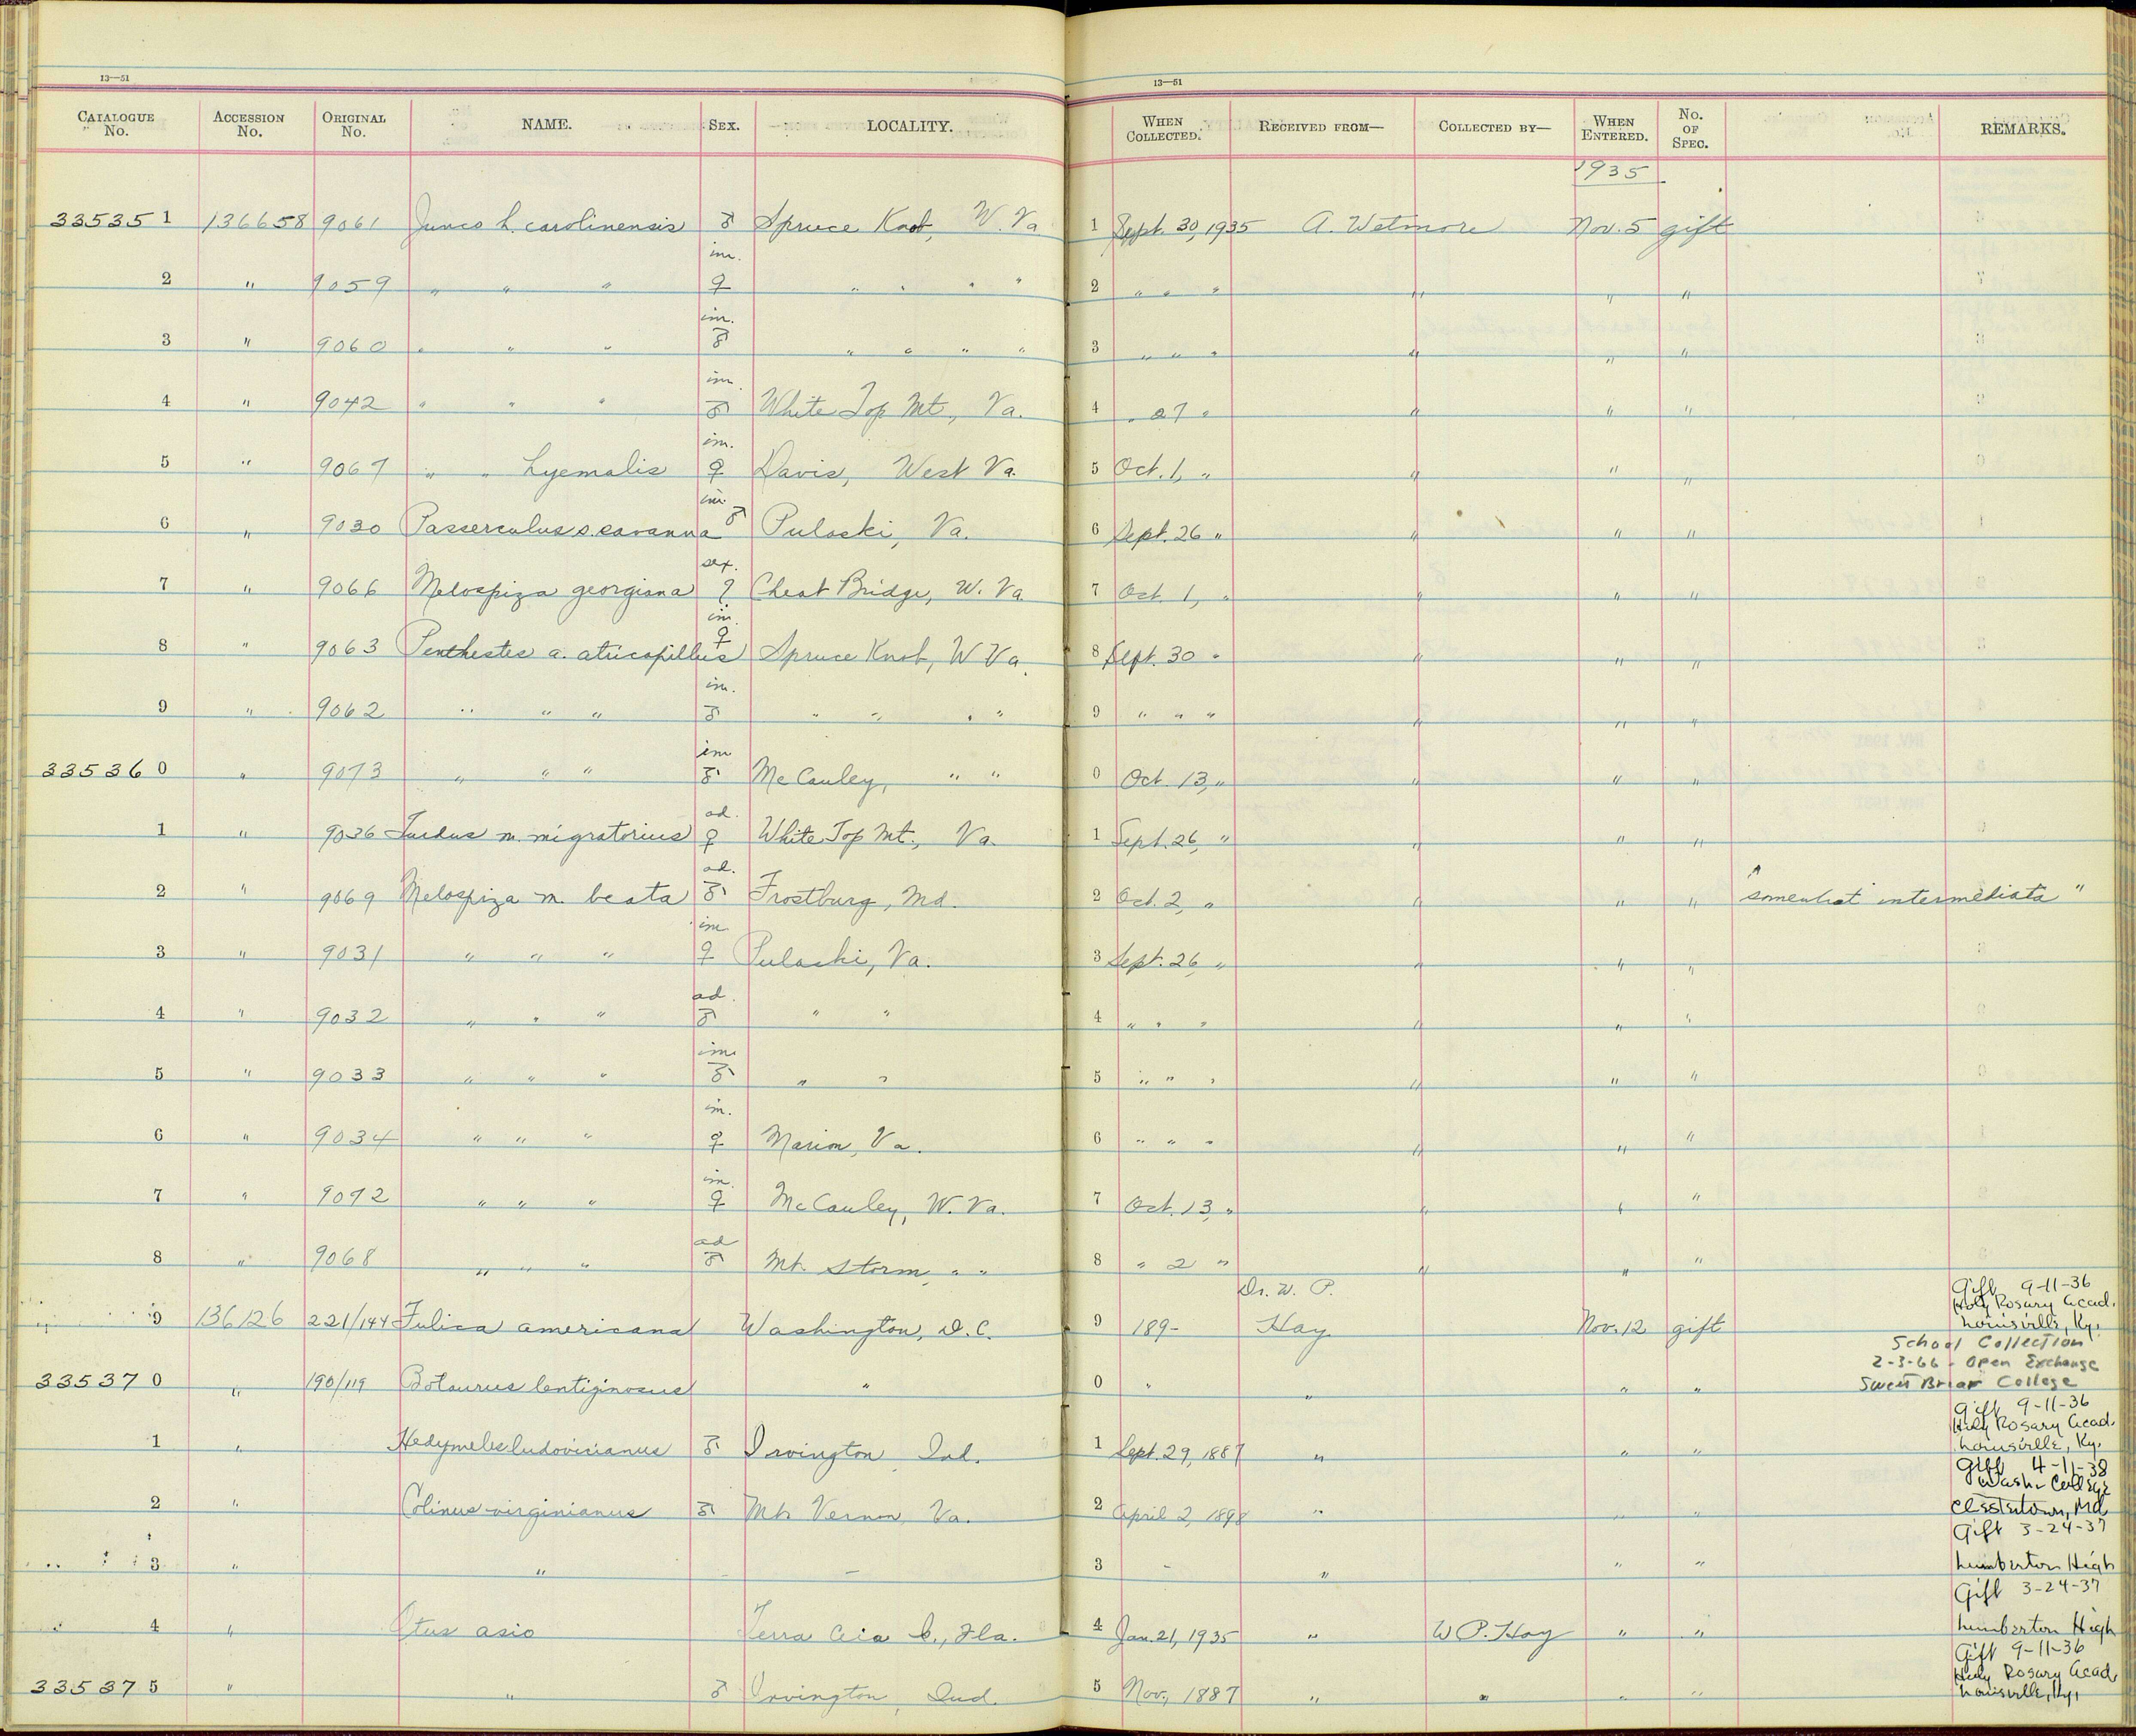 13—51
13—51
CATALOGUE No. ACCESSION No. ORIGINAL No. NAME. SEX. LOCALITY. WHEN COLLECTED. RECEIVED FROM— COLLECTED BY— WHEN ENTERED. No. OF SPEC. REMARKS.
1935
335351 136658 9061 Junco h. carolinensis ♂ Spruce Knob, W. Va 1 Sept. 30, 1935 A. Wetmore Nov. 5 gift
2 " 9059 " " " im. ♀ " " " " 2 " " " " " "
3 " 9060 " " " im. ♂ " " " " 3 " " " " " "
4 " 9042 " " " im. ♂ White Top Mt., Va. 4 " 27 " " " "
5 " 9067 " " hyemalis im. ♀ Davis, West Va. 5 Oct. 1, " " " "
6 " 9030 Passerculus s. savanna im. ♂ Pulaski, Va. 6 Sept. 26 " " " "
7 " 9066 Melospiza georgiana sex. ? Cheat Bridge, W. Va 7 Oct. 1, " " " "
8 " 9063 Penthestes a. atricapillus im. ♀ Spruce Knob, W Va. 8 Sept. 30 " " " "
9 " 9062 " " " im. ♂ " " " " 9 " " " " " "
335360 " 9073 " " " im ♂ McCauley, " " 0 Oct. 13, " " " "
1 " 9036 Turdus m. migratorius ad. ♀ White Top Mt., Va. 1 Sept. 26, " " " "
2 " 9069 Melospiza m. beata ad. ♂ Frostburg, Md. 2 Oct. 2, " " " " "somewhat intermediate"
3 " 9031 " " " im ♀ Pulaski, Va. 3 Sept. 26, " " " "
4 " 9032 " " " ad. ♂ " " 4 " " " " " "
5 " 9033 " " " im. ♂ " " 5 " " " " " "
6 " 9034 " " " im. ♀ Marion, Va. 6 " " " " " "
7 " 9072 " " " im. ♀ McCauley, W. Va. 7 Oct. 13, " " " "
8 " 9068 " " " ad ♂ Mt. Storm, " " 8 " 2 " " " "
9 136126 221/144 Fulica americana Washington, D.C. 9 189- Dr. W. P. Hay Nov. 12 gift Gift 9-11-36
Holy Rosary Acad.
Louisville, Ky.
335370 " 190/119 Botaurus lentiginosus " 0 " " " " School Collection
2-3-66 - Open Exchange
Sweet Briar College
1 " Hedymeles ludovicianus ♂ Irvington, Ind. 1 Sept. 29, 1887 " " " Gift 9-11-36
Holy Rosary Acad.
Louisville, Ky.
2 " Colinus virginianus ♂ Mt. Vernon, Va. 2 April 2, 1898 " " " Gift 4-11-38
Wash. College
Chestertown, Md
3 " " - - 3 - " " " Gift 3-24-37
Lumberton High
4 " Otus asio Terra Ceia I., Fla. 4 Jan. 21, 1935 " W P. Hay " " Gift 3-24-37
Lumberton High
335375 " " ♂ Irvington, Ind. 5 Nov., 1887 " " " " Gift 9-11-36
Holy Rosary Acad.
Louisville, Ky.